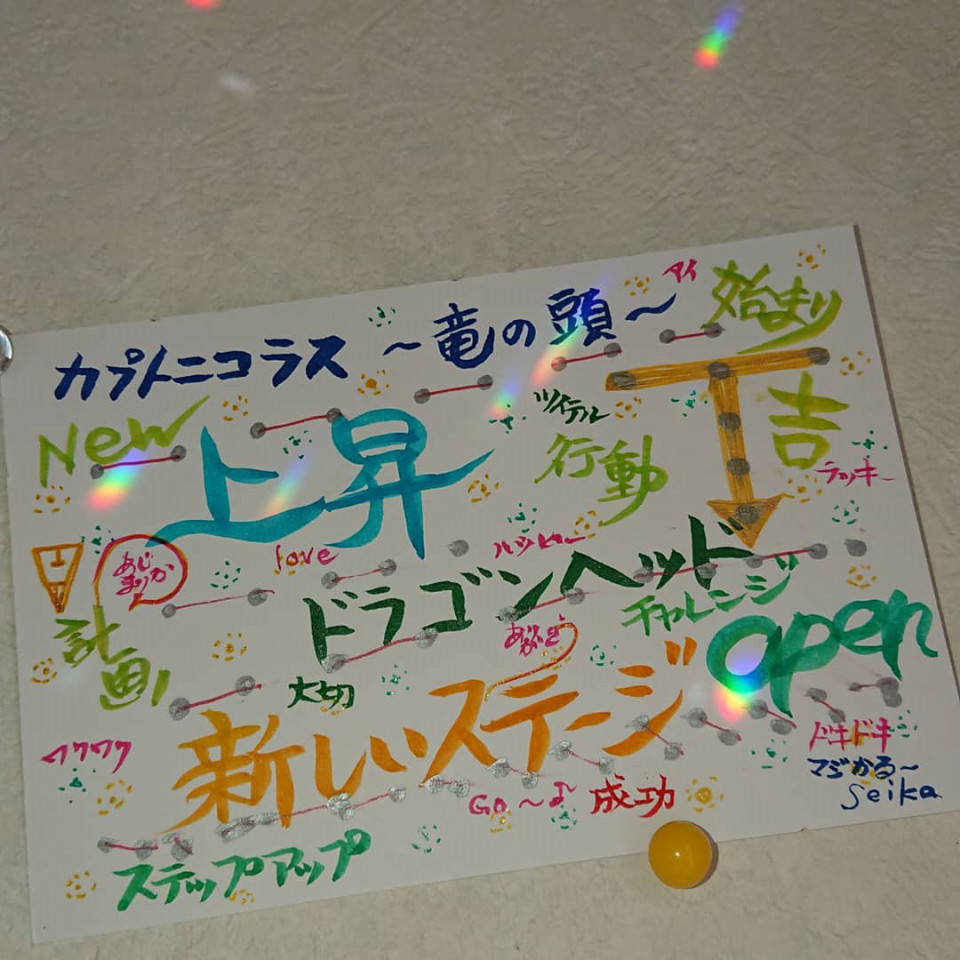 カプトニコラス ～竜の頭～
アイ
始まり
New
上昇
ツイテル
行動
吉
ラッキー
あじまりか
love
ドラゴンヘッド
チャレンジ
open
計画
大切
新しいステージ
ワクワク
ドキドキ
Go～♪
成功
マジかる～
Seika
ステップアップ